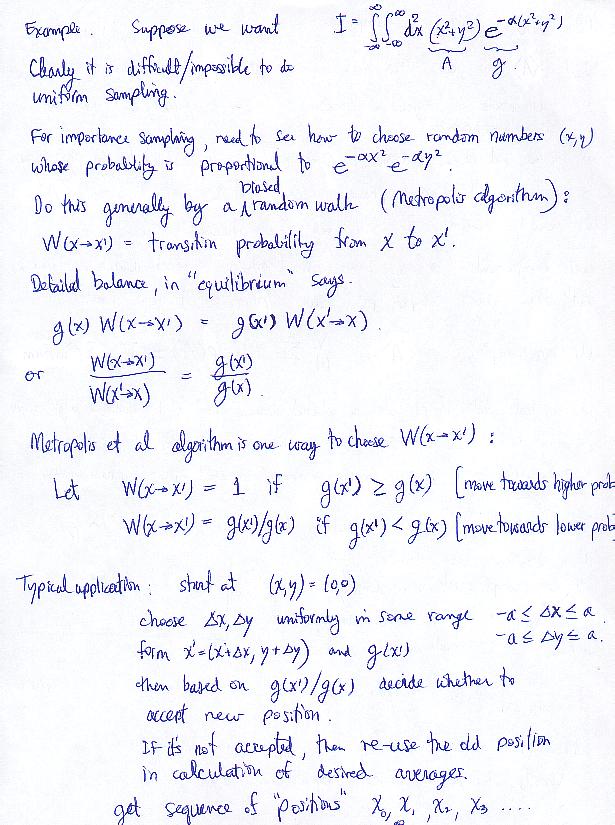 Example. Suppose we want I = ∞∫-∞ ∫-∞^∞ d²x (x²+y²) e^-α(x²+y²)
A g.
Clearly it is difficult/impossible to do
uniform sampling.
For importance sampling, need to see how to choose random numbers (x,y)
whose probability is proportional to e^-αx² e^-αy².
Do this generally by a biased random walk (Metropolis algorithm):
W(x→x') = transition probability from x to x'.
Detailed balance, in "equilibrium" says.
g(x) W(x→x') = g(x') W(x'→x).
or W(x→x')/W(x'→x) = g(x')/g(x).
Metropolis et al algorithm is one way to choose W(x→x'):
Let W(x→x') = 1 if g(x') ≥ g(x) [move towards higher prob
W(x→x') = g(x')/g(x) if g(x') < g(x) [move towards lower prob
Typical application: start at (x,y) = (0,0)
choose Δx, Δy uniformly in some range -a ≤ Δx ≤ a.
-a ≤ Δy ≤ a.
form x' = (x+Δx, y+Δy) and g(x')
then based on g(x')/g(x) decide whether to
accept new position.
If it's not accepted, then re-use the old position
in calculation of desired averages.
get sequence of "positions" x₀, x₁, x₂, x₃ ....